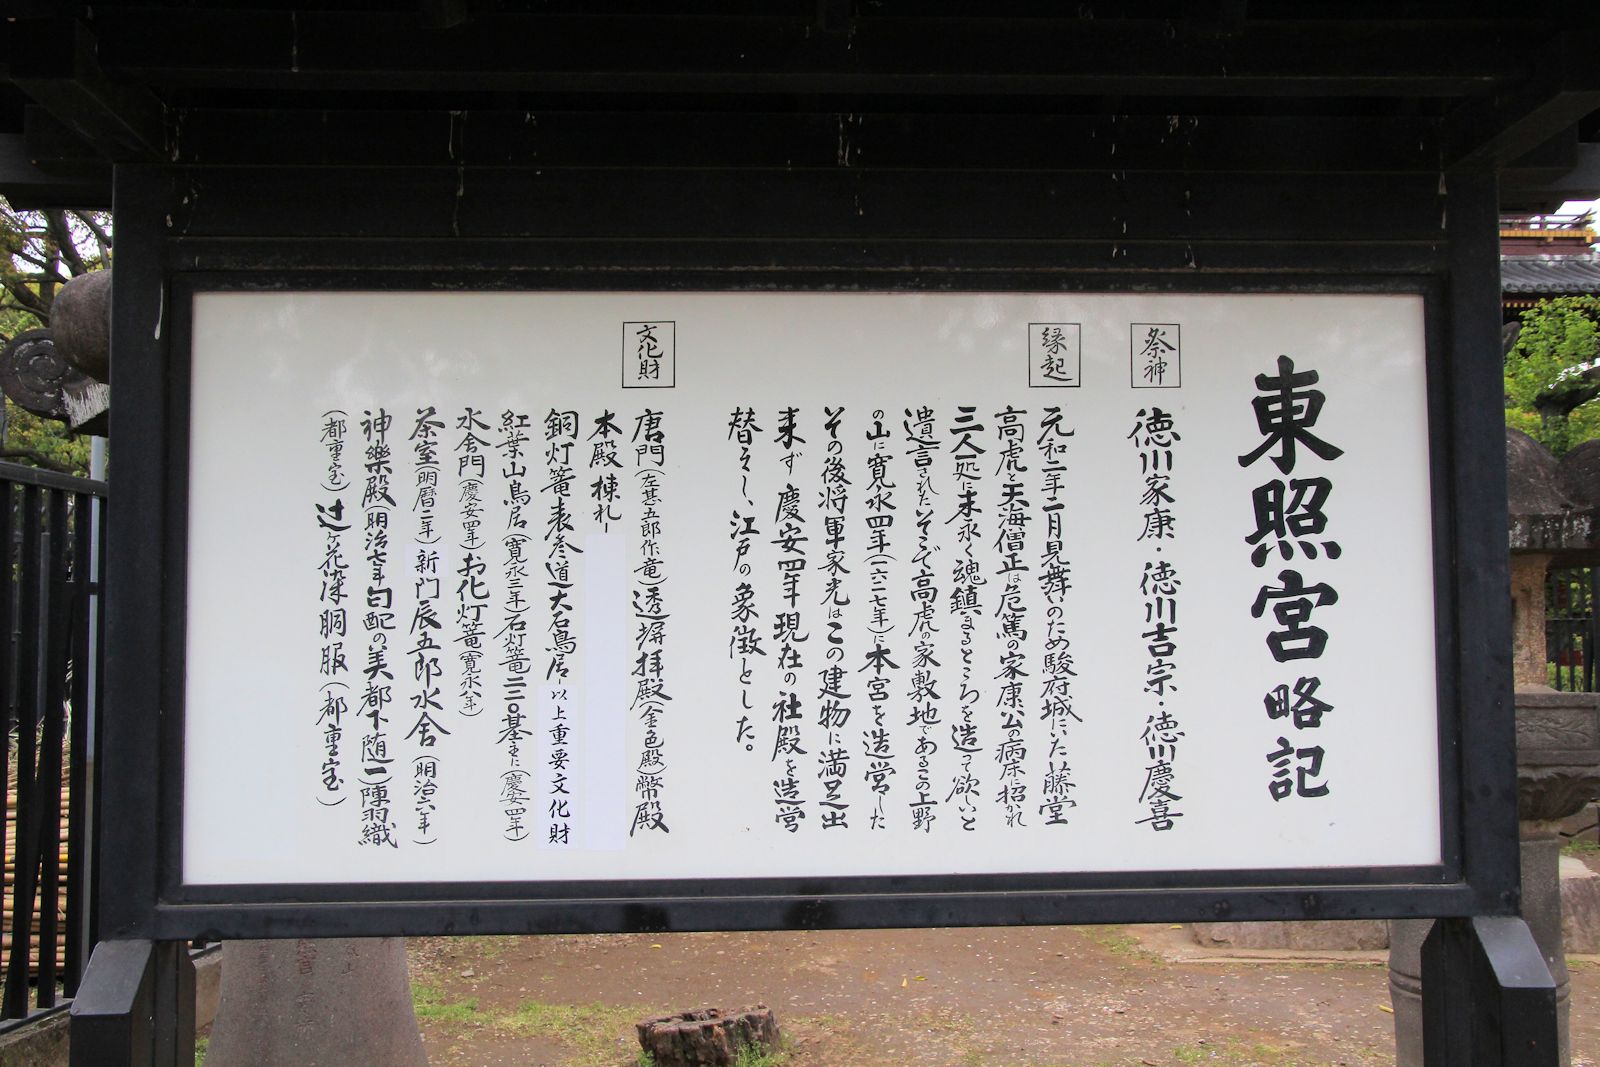 東照宮略記
祭神
徳川家康・徳川吉宗・徳川慶喜
縁起
元和二年二月見舞いのため駿府城にいた藤堂
高虎と天海僧正は危篤の家康公の病床に招かれ
三人一処に末永く魂鎮まるところを造って欲しいと
遺言されたそこで高虎の家敷地であるこの上野
の山に寛永四年(一六二七年)に本宮を造営した
その後将軍家光はこの建物に満足出
来ず慶安四年現在の社殿を造営
替えし、江戸の象徴とした。
文化財
唐門(左甚五郎作竜)透塀拝殿(金色殿)幣殿
本殿棟札一
銅灯篭表参道大石鳥居以上重要文化財
紅葉山鳥居(寛永三年)石灯篭二二〇基主に(慶安四年)
水舎門(慶安四年)お化灯篭(寛永八年)
茶室(明暦二年)新門辰五郎水舎(明治六年)
神樂殿(明治七年勾配の美都下随一)陣羽織
(都重宝)辻ヶ花染胴服(都重宝)